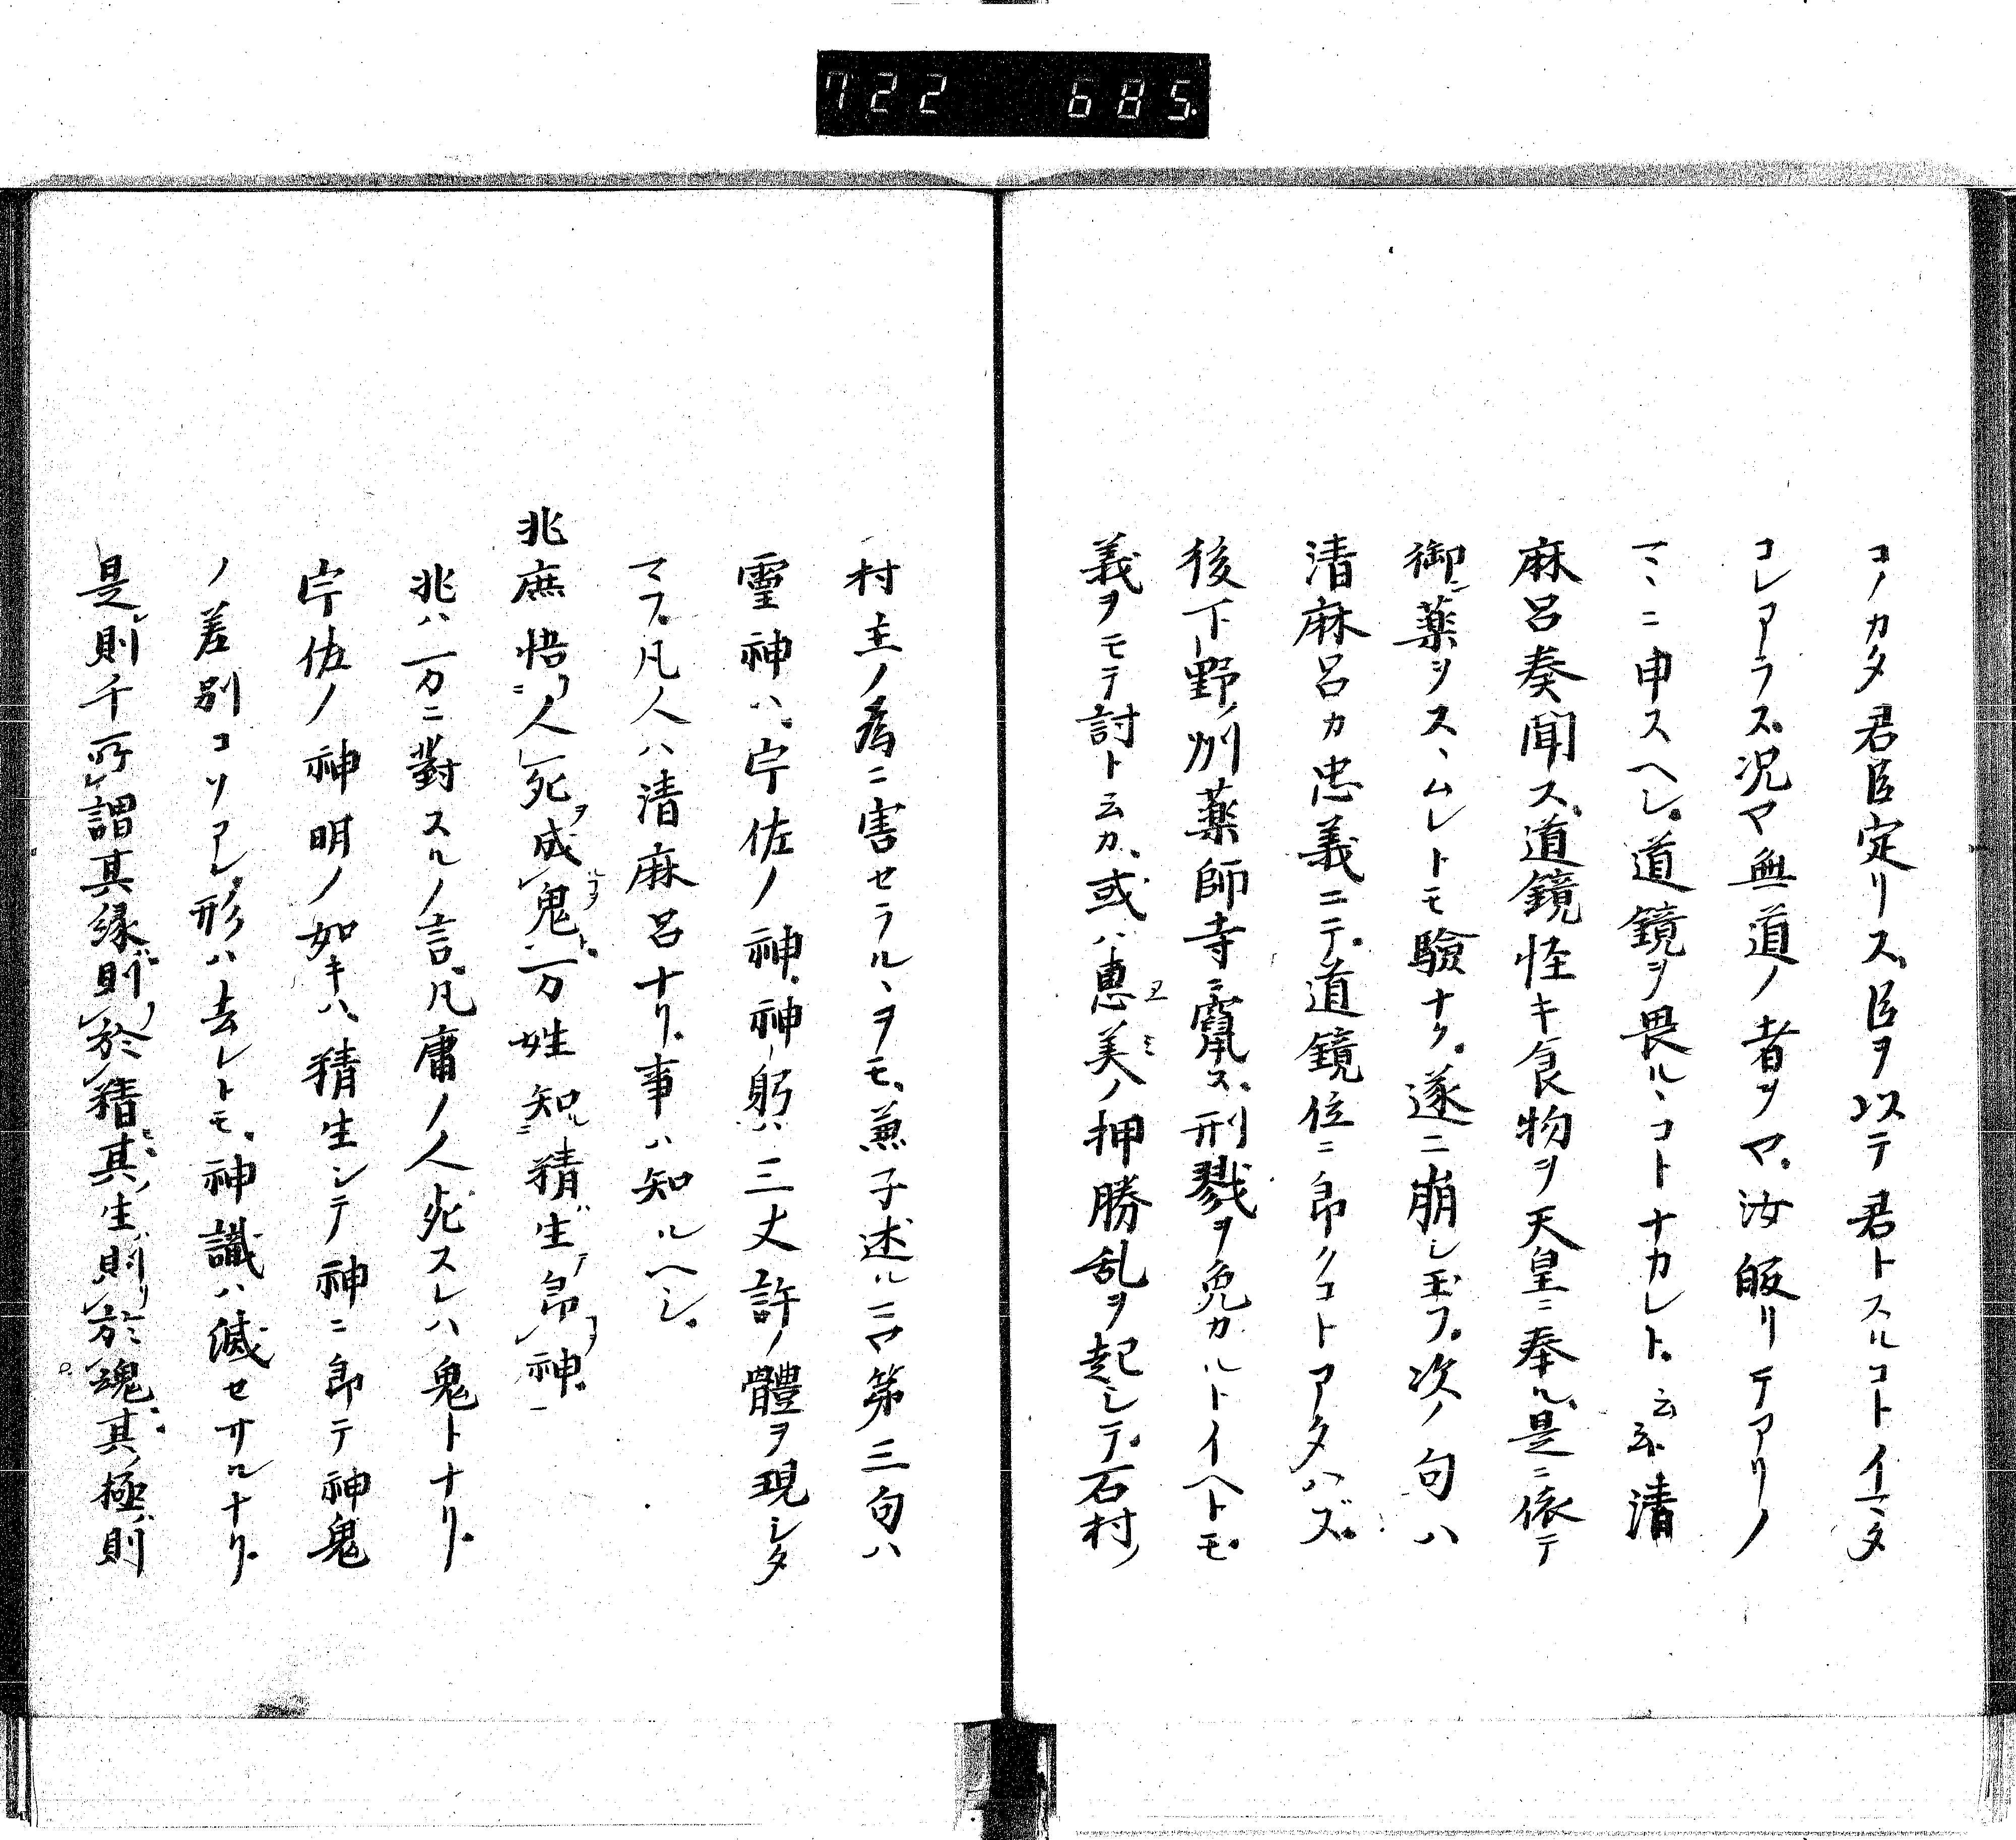 722 685.
コノカタ君臣定リス。臣ヲ以テ君トスルコトイマタ
コレアラス。況マ無道ノ者ヲマ。汝皈リテアリノ
マヽニ申スヘシ。道鏡ヲ畏ルヽコトナカレト。云云清
麻呂奏聞ス。道鏡怪キ食物ヲ天皇ニ奉ル。是ニ依テ
御薬ヲスヽムレトモ驗ナク。遂ニ崩シ玉フ。次ノ句ハ
清麻呂カ忠義ニテ。道鏡位ニ即クコトアタハズ。
後下野ノ州薬師寺ニ竄ス。刑戮ヲ免カルトイヘトモ。
義ヲモテ討ト云カ。或ハ惠美ノ押勝乱ヲ起シテ。石村ノ
村主ノ爲ニ害セラルヽヲモ。兼子述ルニヤ第三句ハ
霊神ハ。宇佐ノ神。神躬ハ三丈許ノ體ヲ現シタ
マフ。凡人ハ清麻呂ナリ。事ハ知ルヘシ。
兆庶悟人死成鬼。万姓知精生即神。
兆ハ万ニ對スルノ言。凡庸ノ人死スレハ鬼トナリ。
宇佐ノ神明ノ如キハ。精生シテ神ニ即テ神鬼
ノ差別コソアレ。形ハ去レトモ。神識ハ滅セサルナリ。
是則千所謂其縁則於精其生則於魂其極則